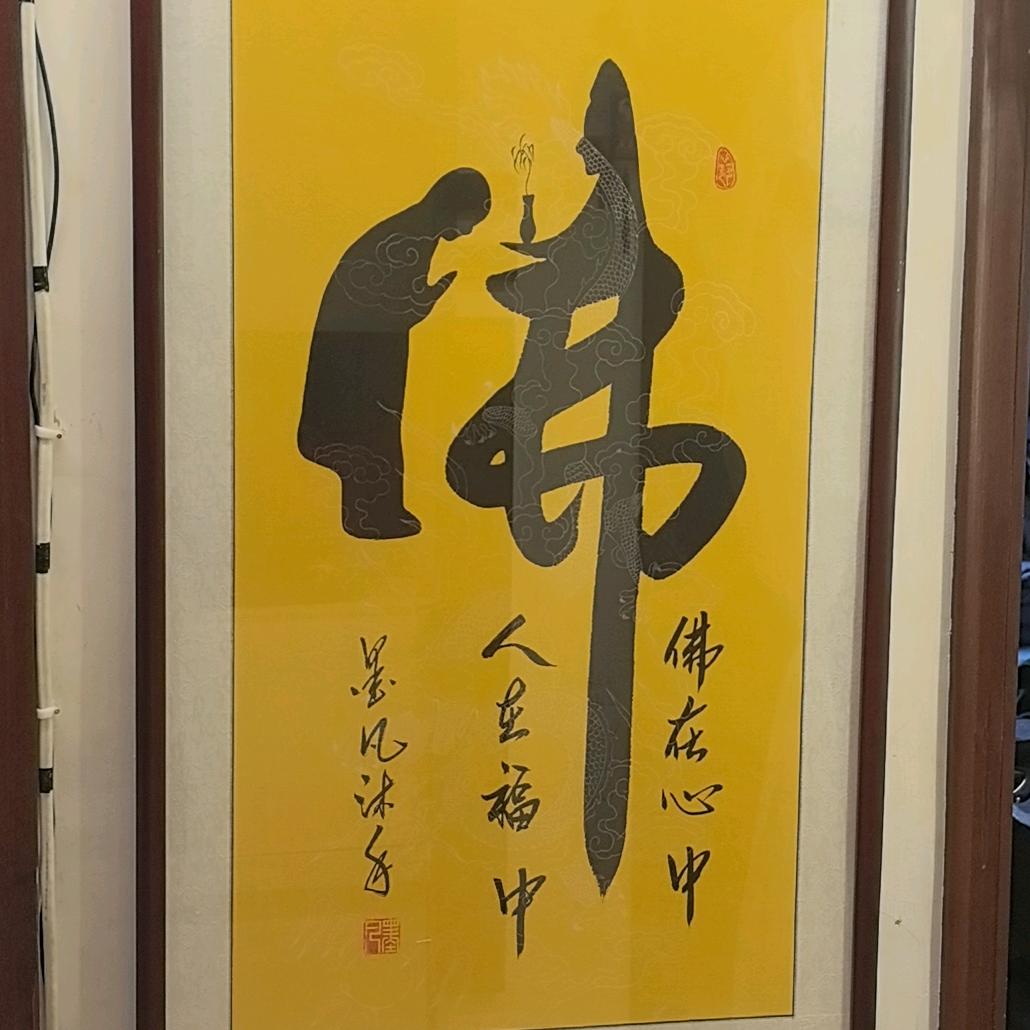 佛
佛在心中
人在福中
墨凡沐手